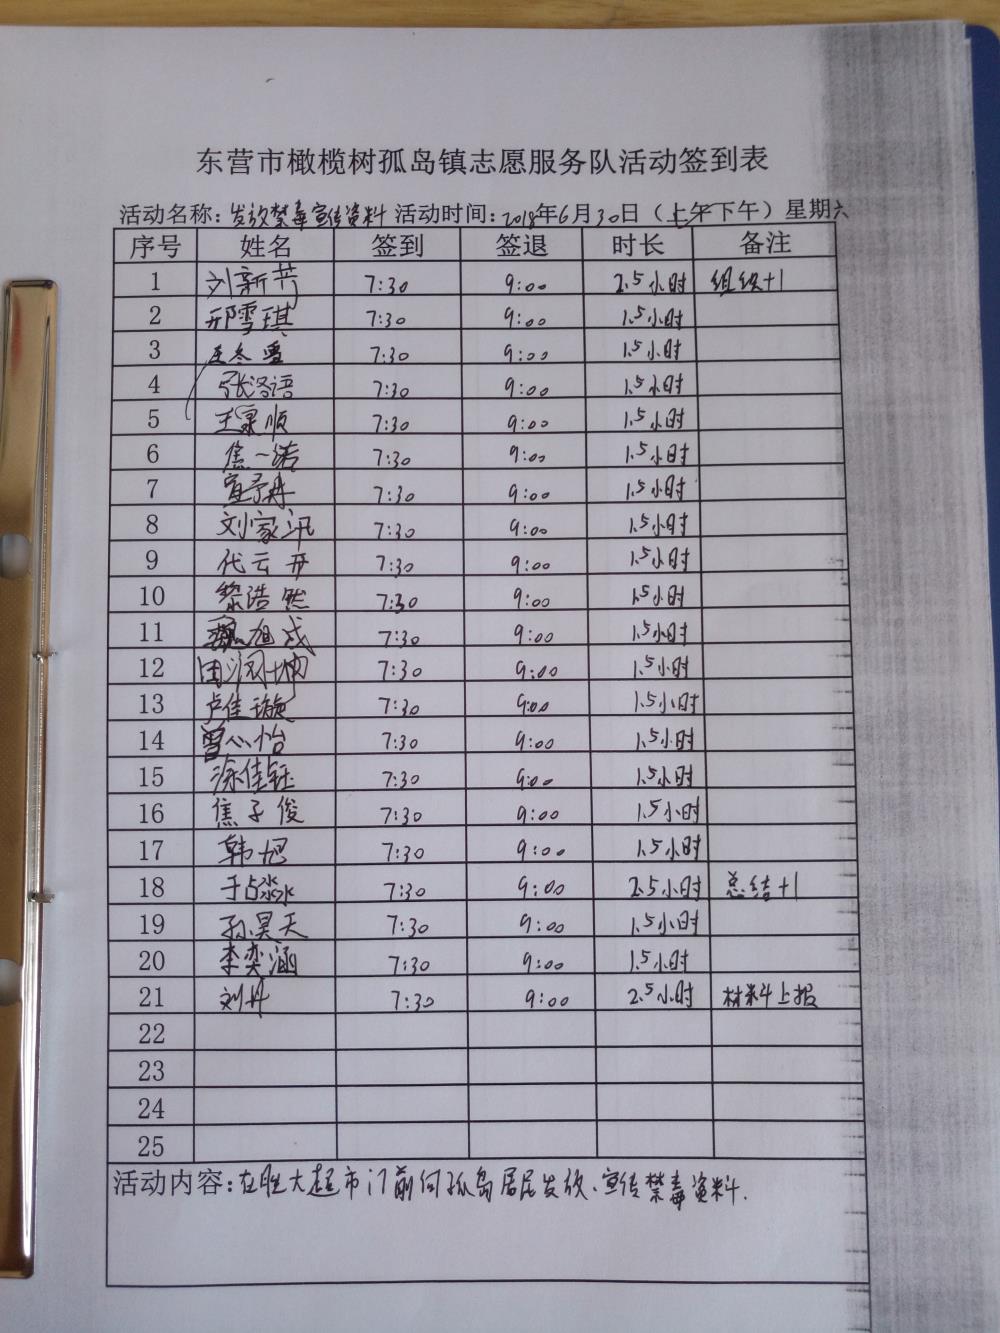 东营市橄榄树孤岛镇志愿服务队活动签到表
活动名称:发放禁毒宣传资料 活动时间:2018年6月30日（上午下午）星期六
序号 姓名 签到 签退 时长 备注
1 刘新芳 7:30 9:00 2.5小时 组织+1
2 邢雪琪 7:30 9:00 1.5小时
3 王冬雪 7:30 9:00 1.5小时
4 张洛语 7:30 9:00 1.5小时
5 王泉顺 7:30 9:00 1.5小时
6 焦一诺 7:30 9:00 1.5小时
7 7:30 9:00 1.5小时
8 刘家讯 7:30 9:00 1.5小时
9 代云开 7:30 9:00 1.5小时
10 黎浩然 7:30 9:00 1.5小时
11 旭成 7:30 9:00 1.5小时
12 田润坤 7:30 9:00 1.5小时
13 卢佳璇 7:30 9:00 1.5小时
14 曾心怡 7:30 9:00 1.5小时
15 涂佳钰 7:30 9:00 1.5小时
16 焦子俊 7:30 9:00 1.5小时
17 韩旭 7:30 9:00 1.5小时
18 于占淼 7:30 9:00 2.5小时 总结+1
19 孙昊天 7:30 9:00 1.5小时
20 李奕涵 7:30 9:00 1.5小时
21 刘丹 7:30 9:00 2.5小时 材料上报
22
23
24
25
活动内容:在胜大超市门前向孤岛居民发放、宣传禁毒资料.